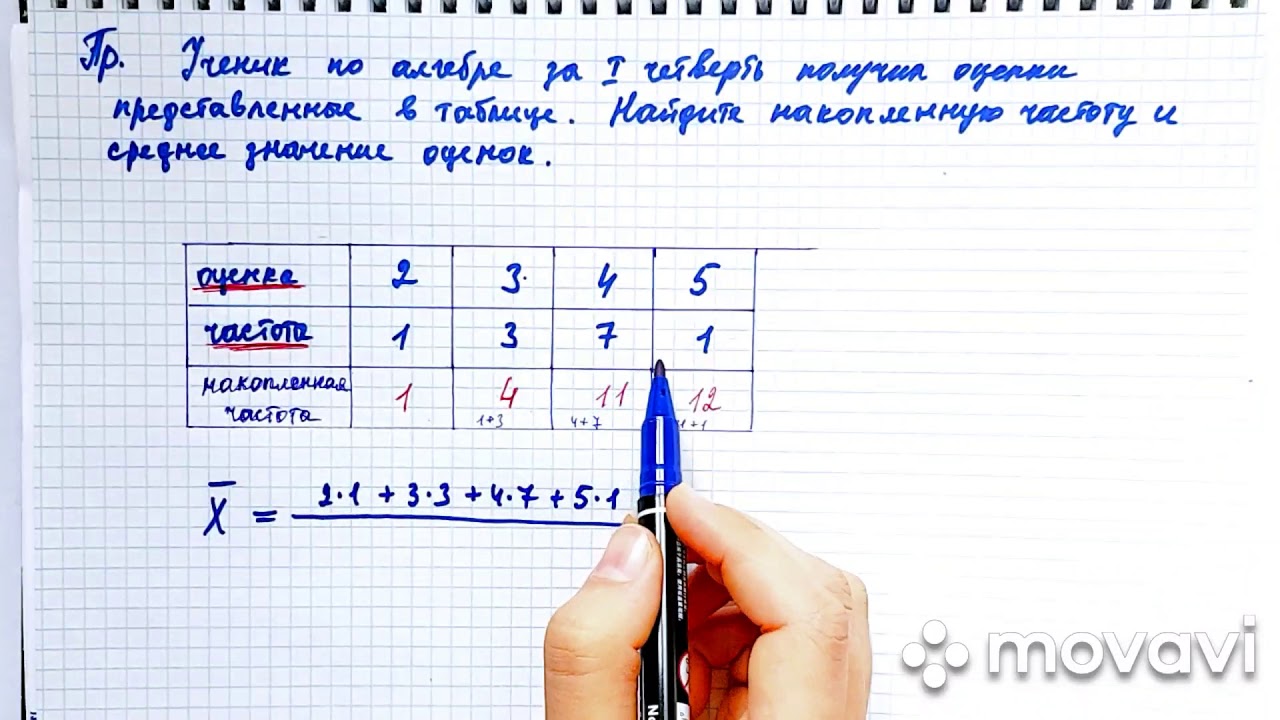 Пр. Ученик по алгебре за I четверть получил оценки
представленные в таблице. Найдите накопленную частоту и
среднее значение оценок.
оценка 2 3 4 5
частота 1 3 7 1
накопленная частота 1 4 11 12
1+3 4+7 +1
X̅ = 2·1 + 3·3 + 4·7 + 5·1
movavi